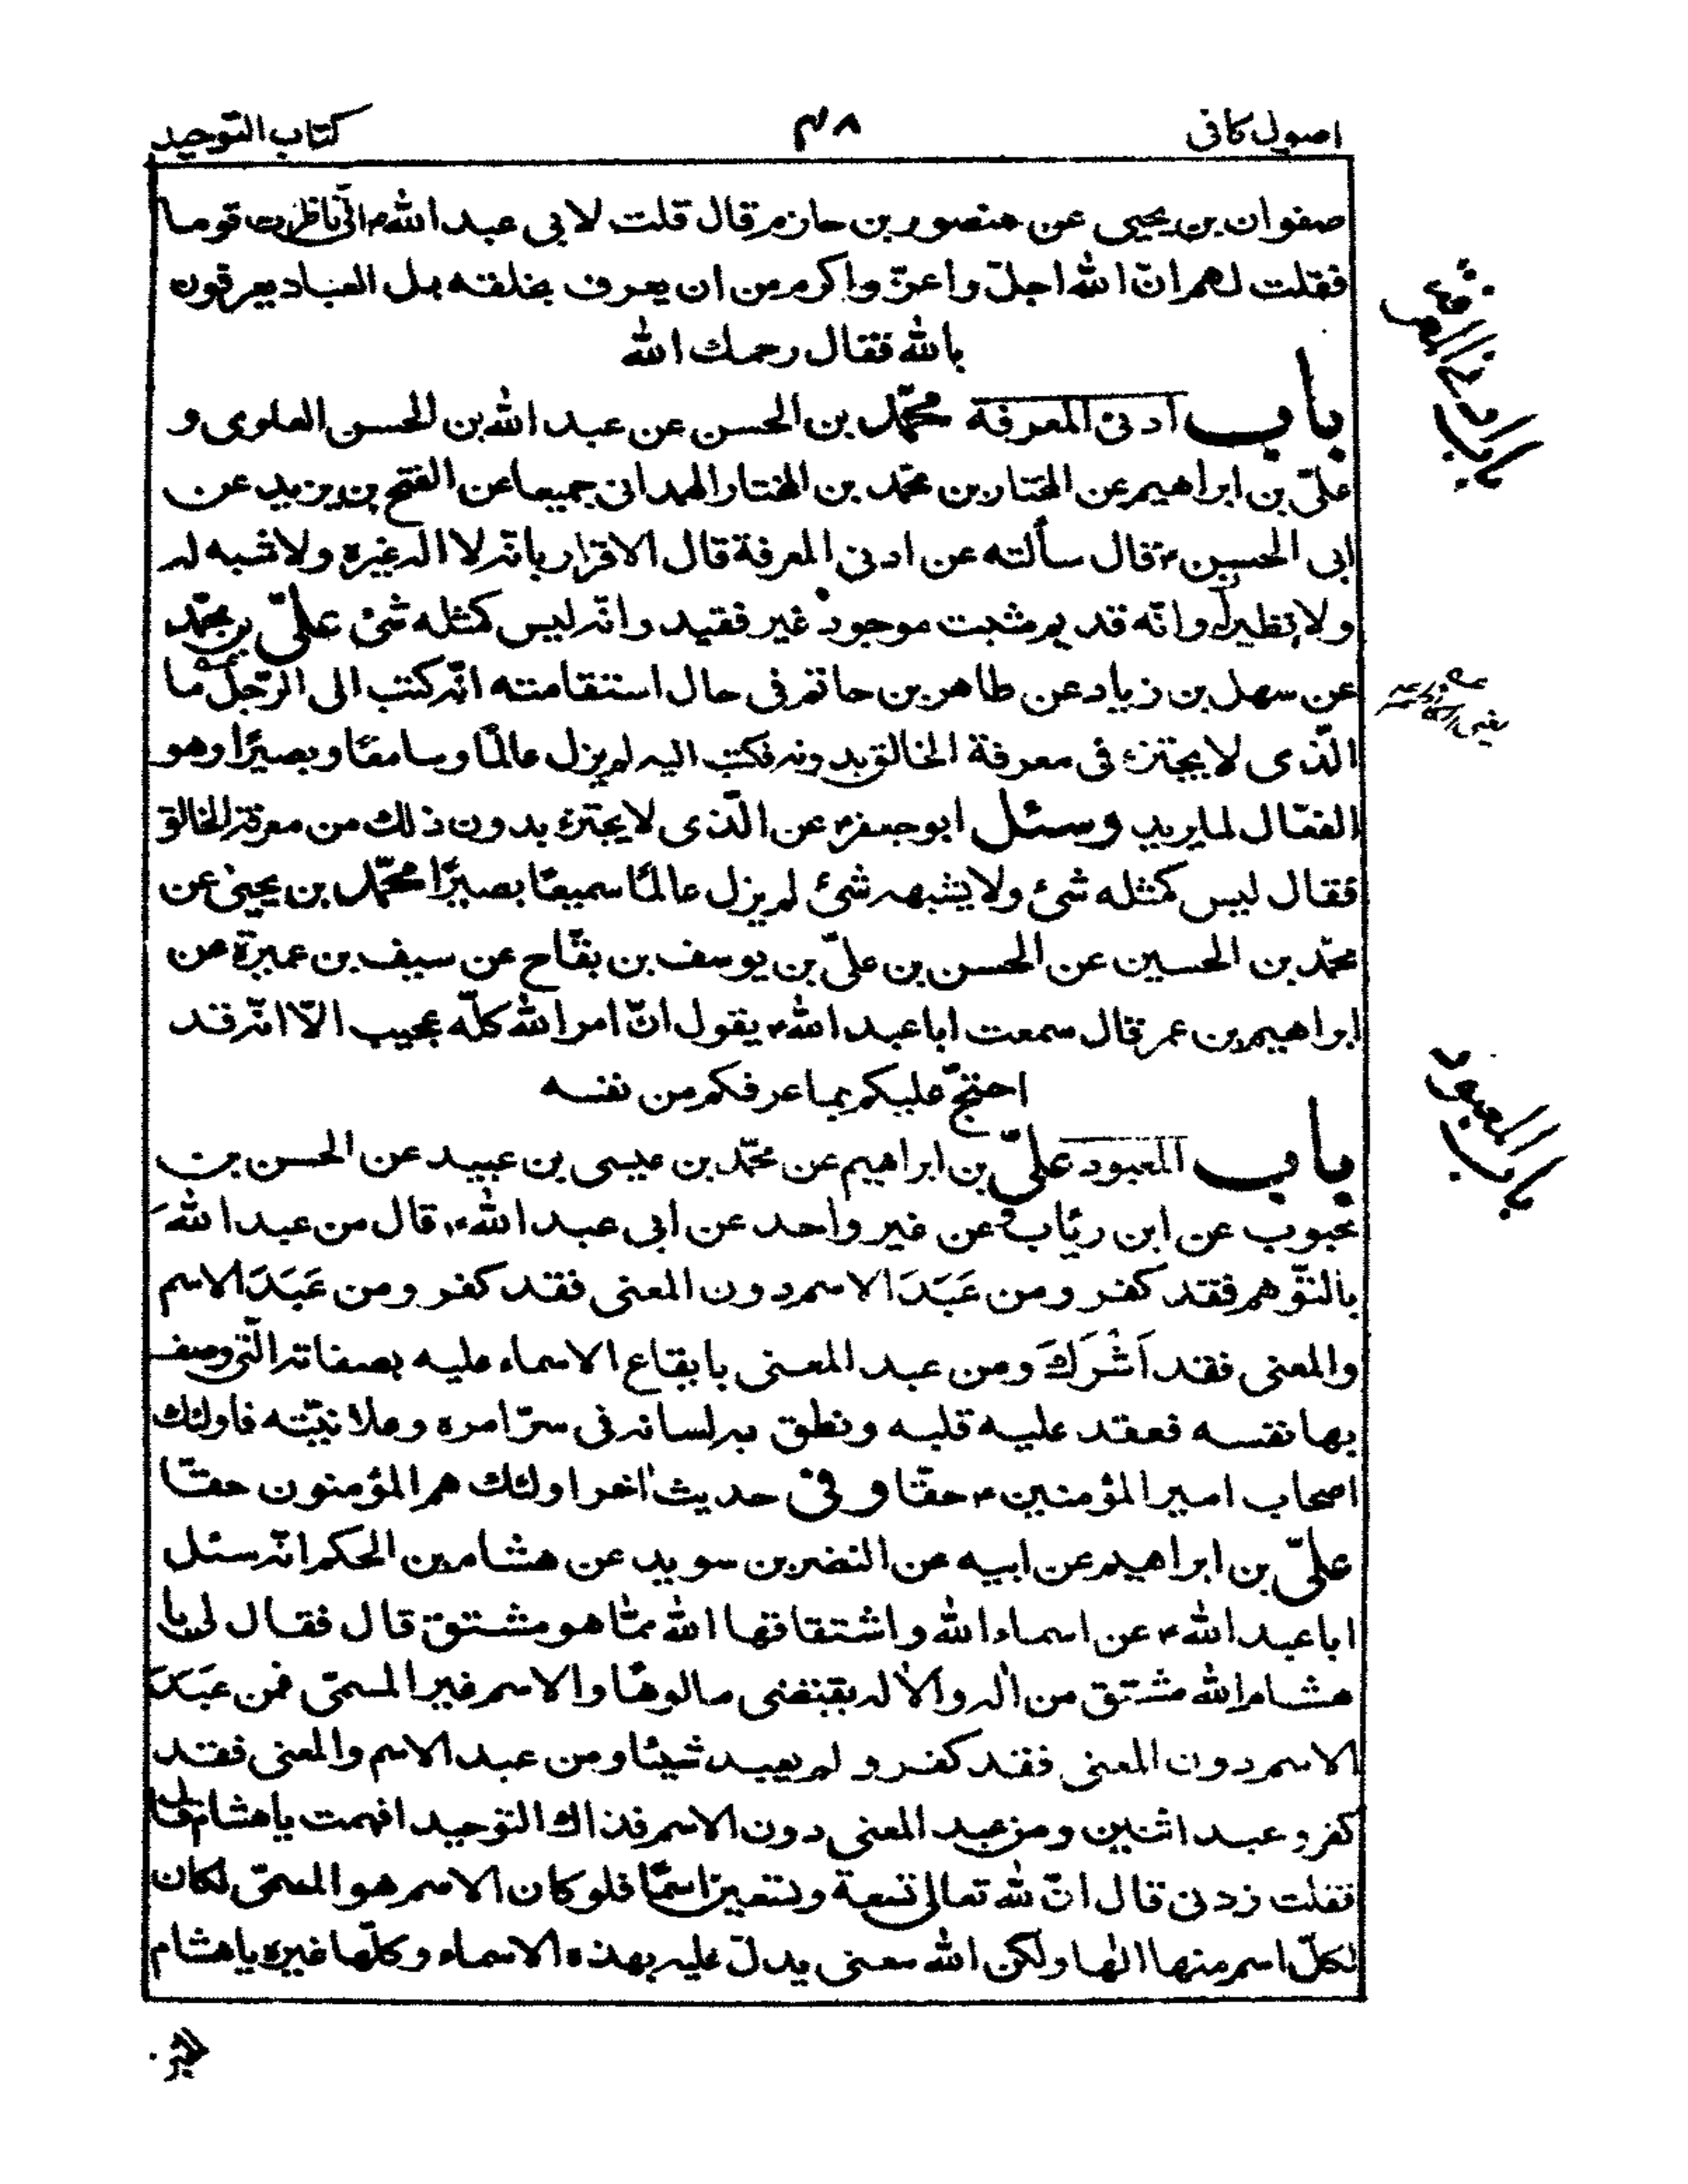 اصول كافى
۴۸
كتاب التوحيد
صفوان بن يحيى عن منصور بن حازم قال قلت لابى عبد الله ع انّى ناظرت قوما
فقلت لهم انّ الله اجلّ واعزّ واكرم من ان يعرف بخلقه بل العباد يعرفون
بالله فقال رحمك الله
باب ادنى المعرفة محمّد بن الحسن عن عبد الله بن الحسن العلوى و
علىّ بن ابراهيم عن المختار بن محمّد بن المختار الهمدانى جميعا عن الفتح بن يزيد عن
ابى الحسن ع قال سألته عن ادنى المعرفة قال الاقرار بانّه لا اله غيره ولا شبه له
ولا نظير له وانّه قديم مثبت موجود غير فقيد وانّه ليس كمثله شئ علىّ بن محمّد
عن سهل بن زياد عن طاهر بن حاتم فى حال استقامته انّه كتب الى الرّجل ما
الّذى لا يجتزء فى معرفة الخالق بدونه فكتب اليه لم يزل عالمًا وسامعًا وبصيرًا وهو
الفعّال لما يريد وسئل ابو جعفر ع عن الّذى لا يجتزء بدون ذلك من معرفة الخالق
فقال ليس كمثله شئ ولا يشبهه شئ لم يزل عالمًا سميعًا بصيرًا محمّد بن يحيى عن
محمّد بن الحسين عن الحسن بن علىّ بن يوسف بن بقّاح عن سيف بن عميرة عن
ابراهيم بن عمر قال سمعت ابا عبد الله ع يقول انّ امر الله كلّه عجيب الّا انّه قد
احتجّ عليكم بما عرفكم من نفسه
باب المعبود علىّ بن ابراهيم عن محمّد بن عيسى بن عبيد عن الحسن بن
محبوب عن ابن رئاب عن غير واحد عن ابى عبد الله ع قال من عبد اللهَ
بالتّوهم فقد كفر ومن عَبَدَ الاسم دون المعنى فقد كفر ومن عَبَدَ الاسم
والمعنى فقد اَشْرَكَ ومن عبد المعنى بايقاع الاسماء عليه بصفاته الّتى وصف
بها نفسه فعقد عليه قلبه ونطق به لسانه فى سرّ امره وعلانيّته فاولئك
اصحاب امير المؤمنين ع حقّا وفى حديث اخر اولئك هم المؤمنون حقّا
علىّ بن ابراهيم عن ابيه عن النضر بن سويد عن هشام بن الحكم انّه سئل
ابا عبد الله ع عن اسماء الله واشتقاقها الله ممّا هو مشتق قال فقال لى يا
هشام الله مشتق من اله والاله يقتضى مالوهًا والاسم غير المسمّى فمن عَبَدَ
الاسم دون المعنى فقد كفر ولم يعبد شيئا ومن عبد الاسم والمعنى فقد
كفر وعبد اثنين ومن عبد المعنى دون الاسم فذاك التوحيد افهمت يا هشام قال
فقلت زدنى قال انّ لله تعالى تسعة وتسعين اسمًا فلو كان الاسم هو المسمّى لكان
لكلّ اسم منها الها ولكن الله معنى يدلّ عليه بهذه الاسماء وكلّها غيره يا هشام
الخبز
باب ادنى المعرفة
باب المعبود